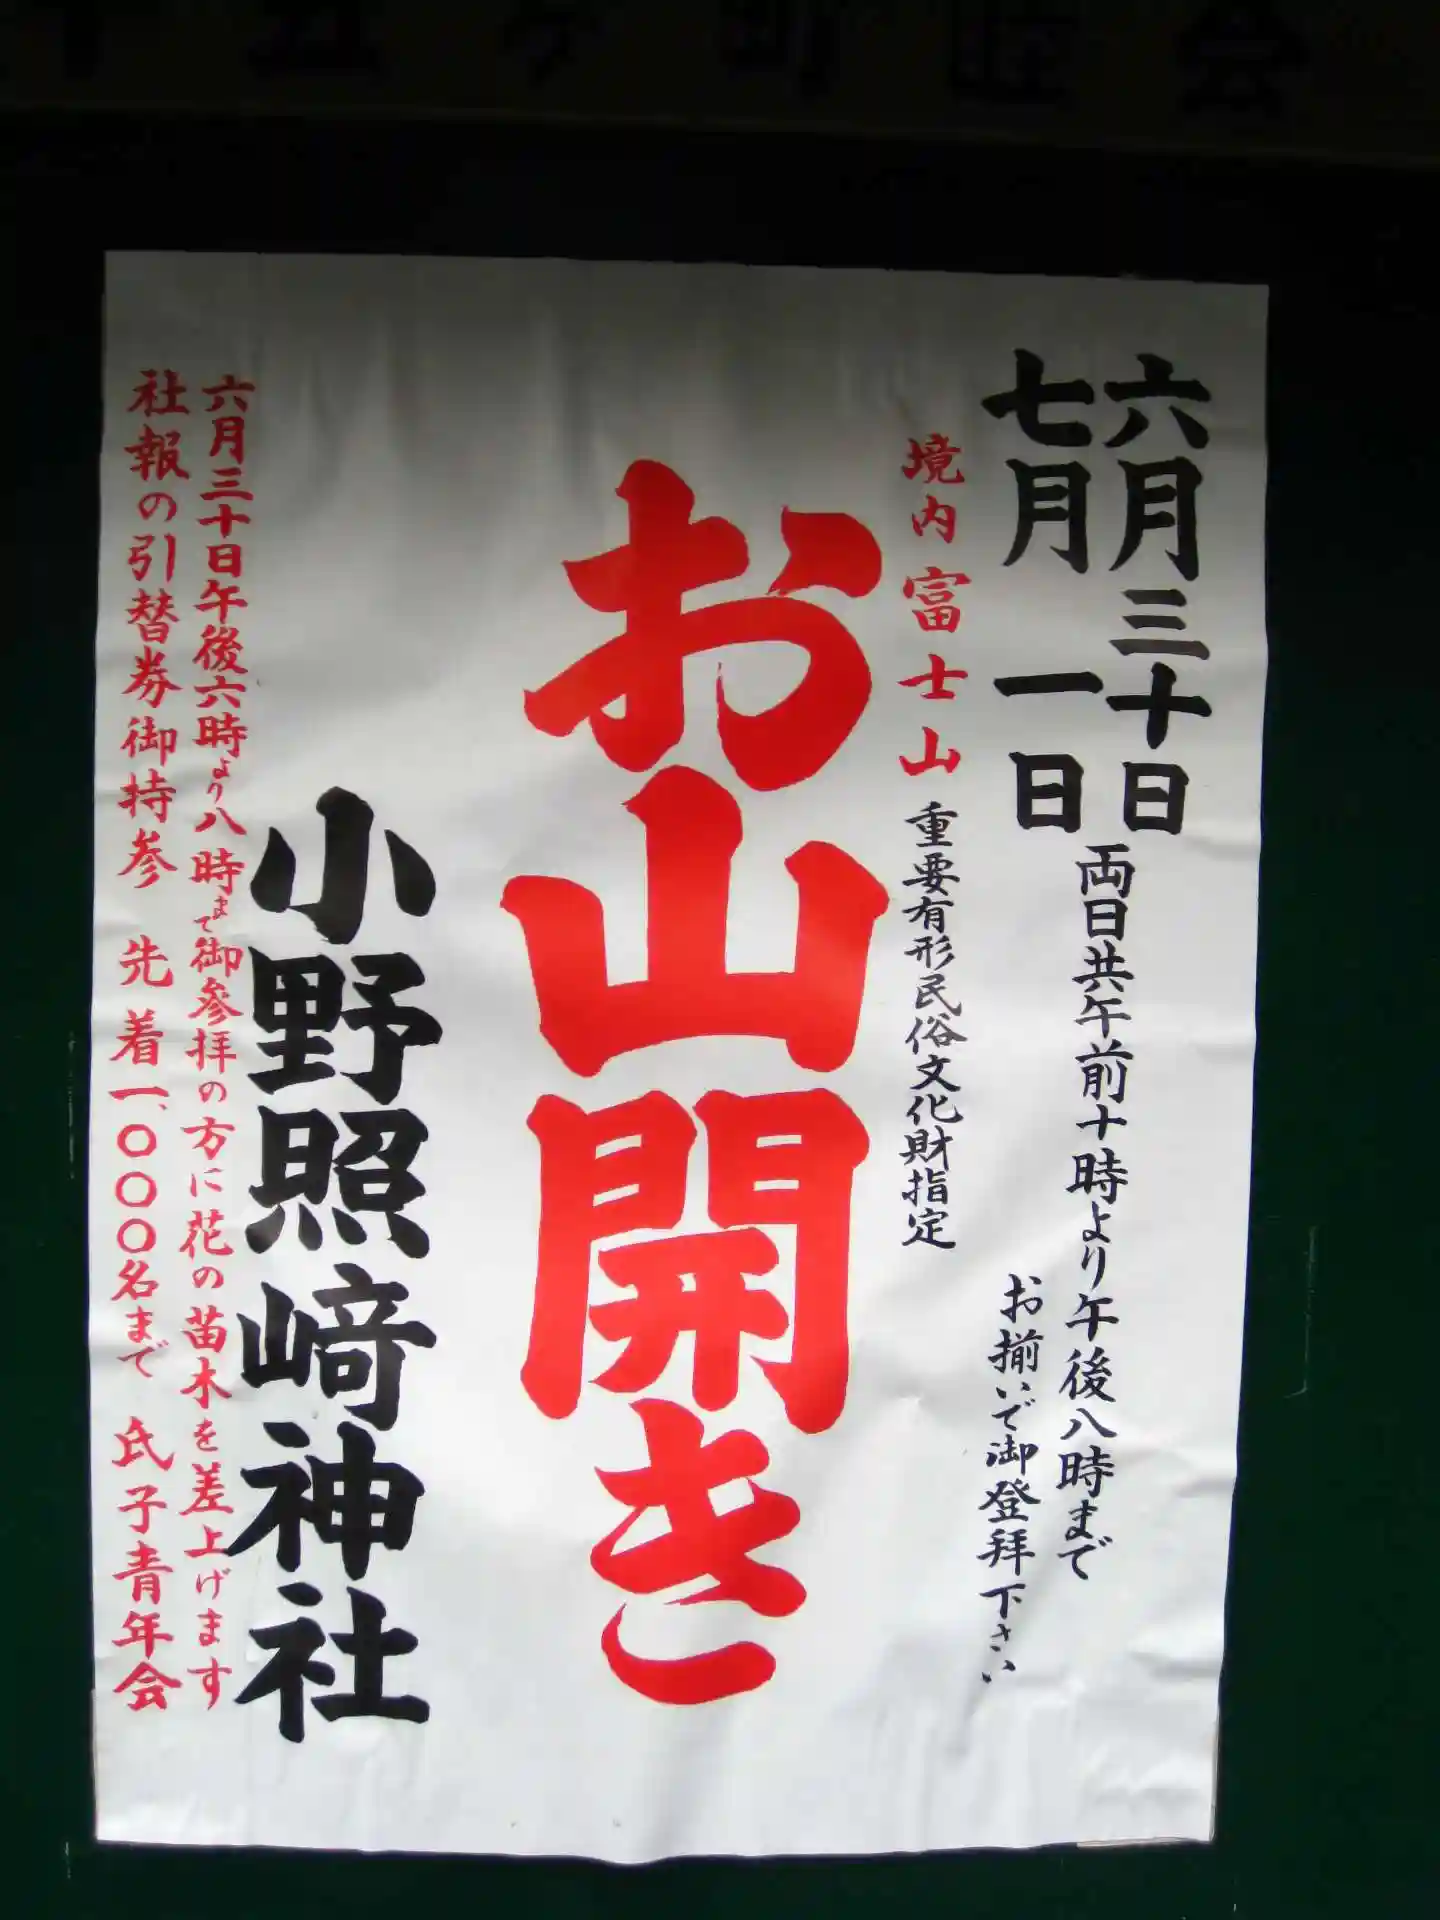 六月三十日
七月一日
両日共午前十時より午後八時まで
お揃いで御登拜下さい
境内富士山 重要有形民俗文化財指定
お山開き
小野照崎神社
六月三十日午後六時より八時まで御参拝の方に花の苗木を差上げます
社報の引替券御持参 先着一、〇〇〇名まで 氏子青年会